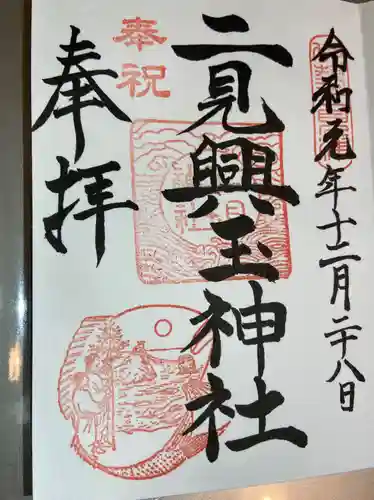 令和元年十二月二十八日
二見興玉神社
奉祝
奉拝